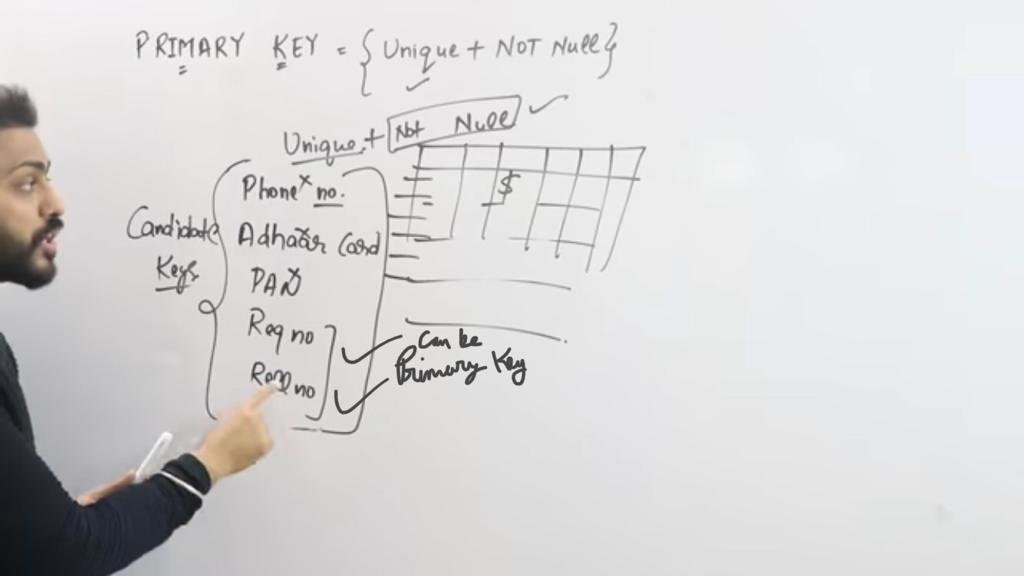 PRIMARY KEY = {Unique + NOT Null}
Unique + Not Null
Candidate Keys
Phone no.
Adhaar Card
PAN
Reg no
Roll no
$
Can be
Primary Key